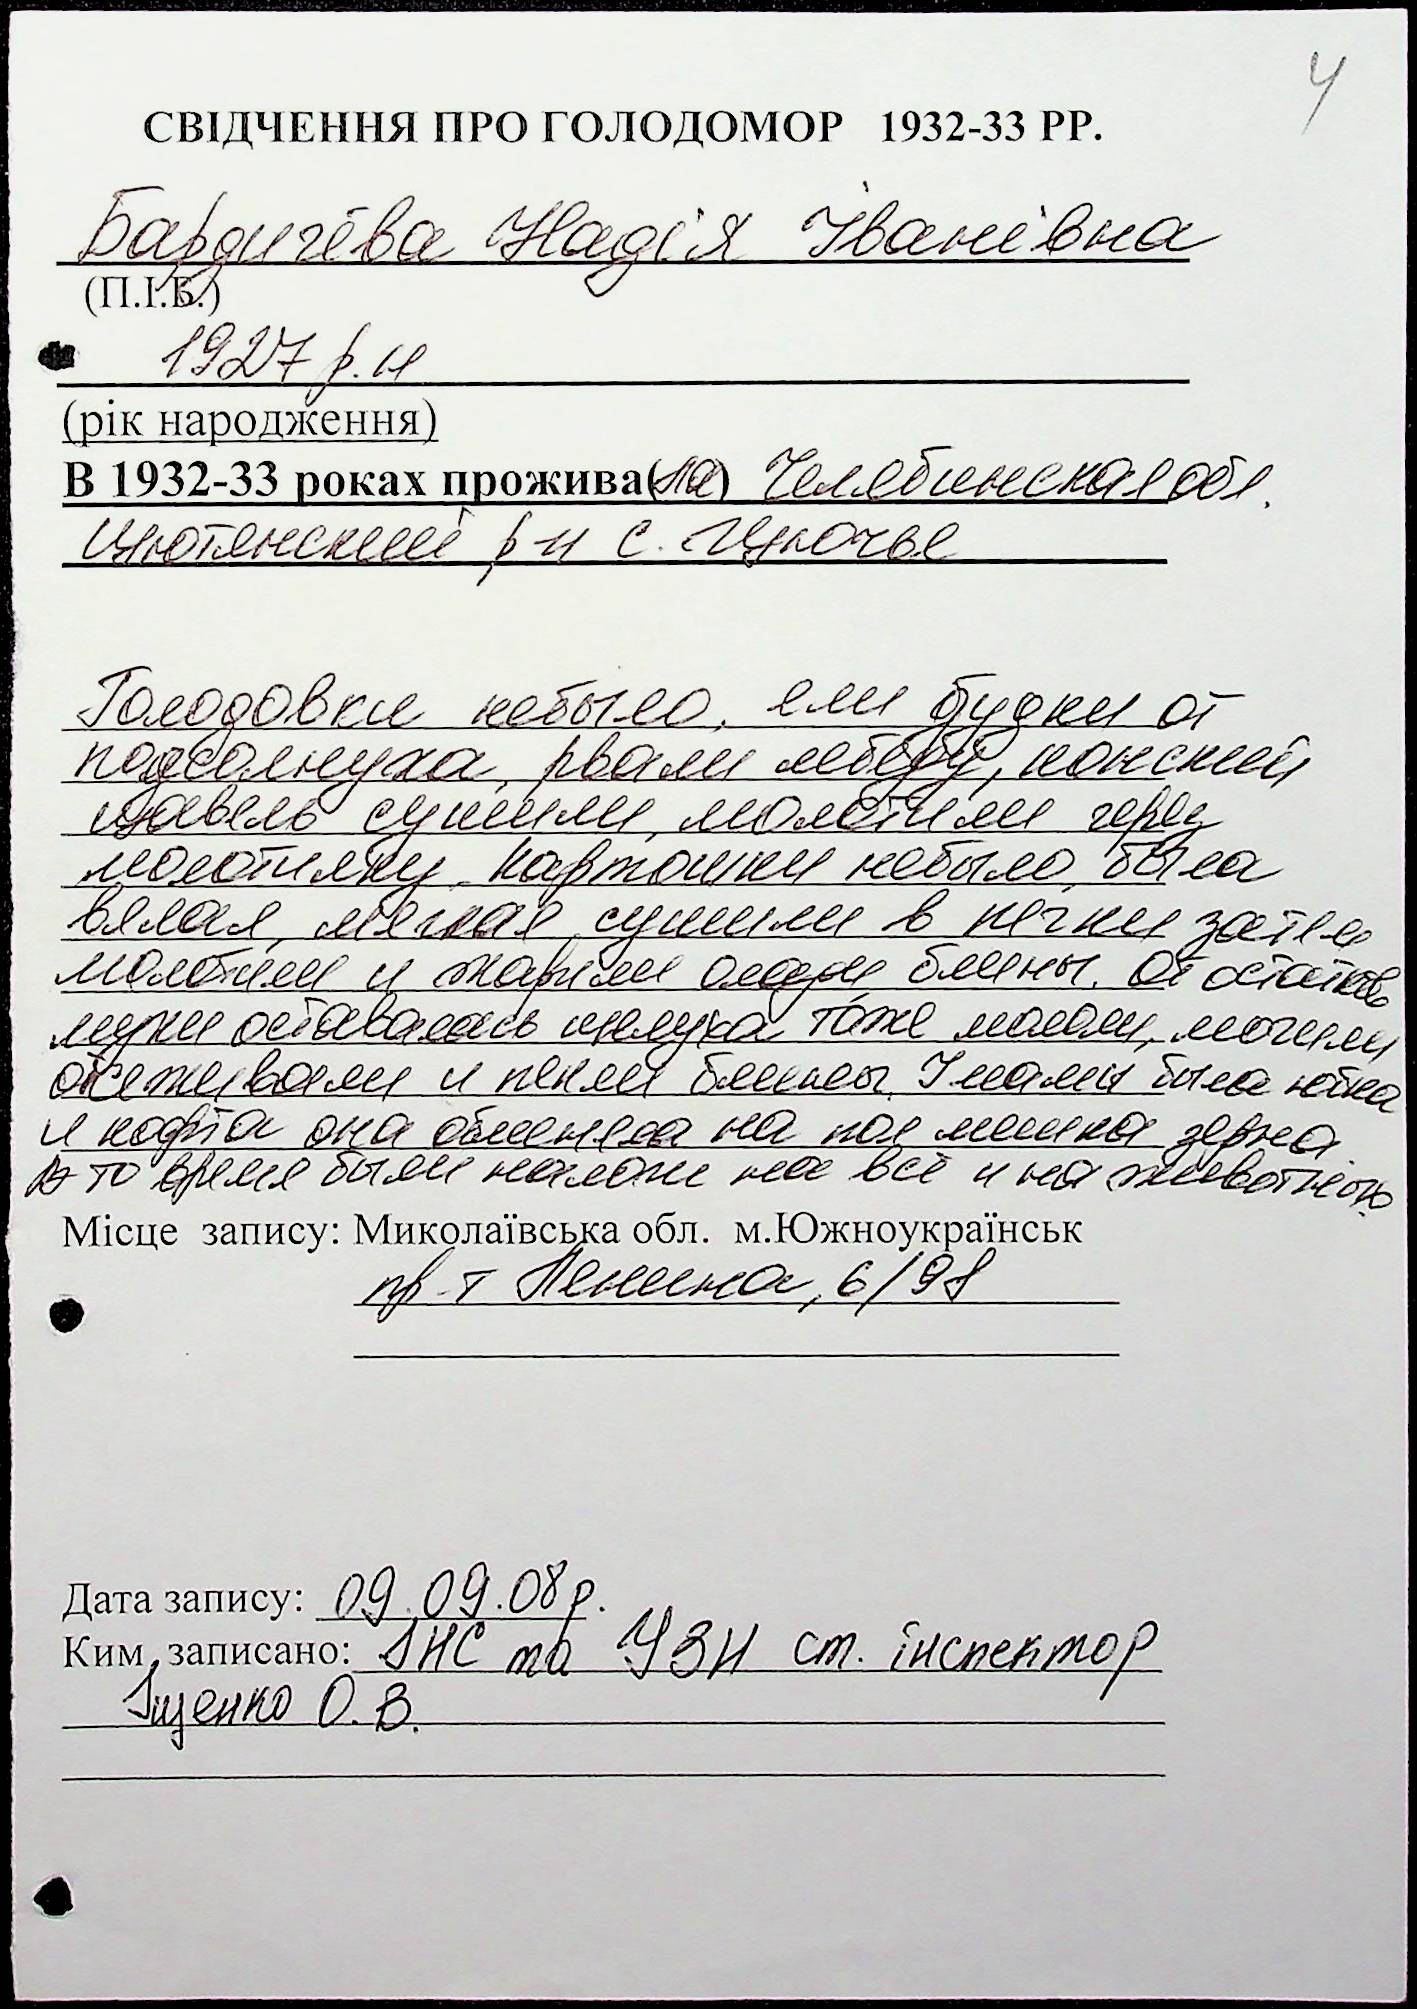 4
СВІДЧЕННЯ ПРО ГОЛОДОМОР 1932-33 РР.
Бардичева Надія Іванівна
(П.І.Б.)
1927 р.н
(рік народження)
В 1932-33 роках прожива(ла) Челябинская обл.
р-н с. Щючье
Голодовки небыло, ели будки от
подсолнуха, рвали лебеду, конский
щавель сушили, молотили через
молотилку. Картошки небыло, была
вялая, мягкая, сушили в печки затем
молотили и жарили оладьи блины. От остатков
муки оставалась шелуха тоже мололи, мочили
отжеживали и пекли блины. У мамы была юбка
и кофта она обменяла на пол мешка зерна.
В то время были налоги на всё и на животною
Місце запису: Миколаївська обл. м.Южноукраїнськ
пр-т Ленина, 6/98
Дата запису: 09.09.08р.
Ким записано: ІНС та УЗН ст. інспектор
Іщенко О.В.